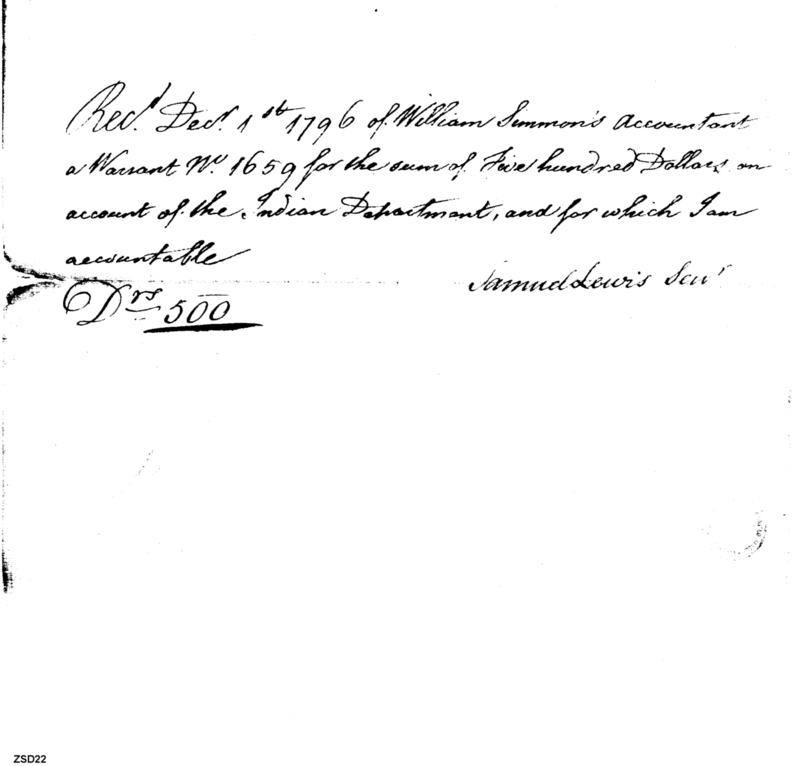 Recd. Decr. 1st 1796 of William Simmons Accountant
a Warrant No. 1659 for the sum of Five hundred Dollars on
account of the Indian Department, and for which I am
accountable
Samuel Lewis Senr
Drs 500
ZSD22